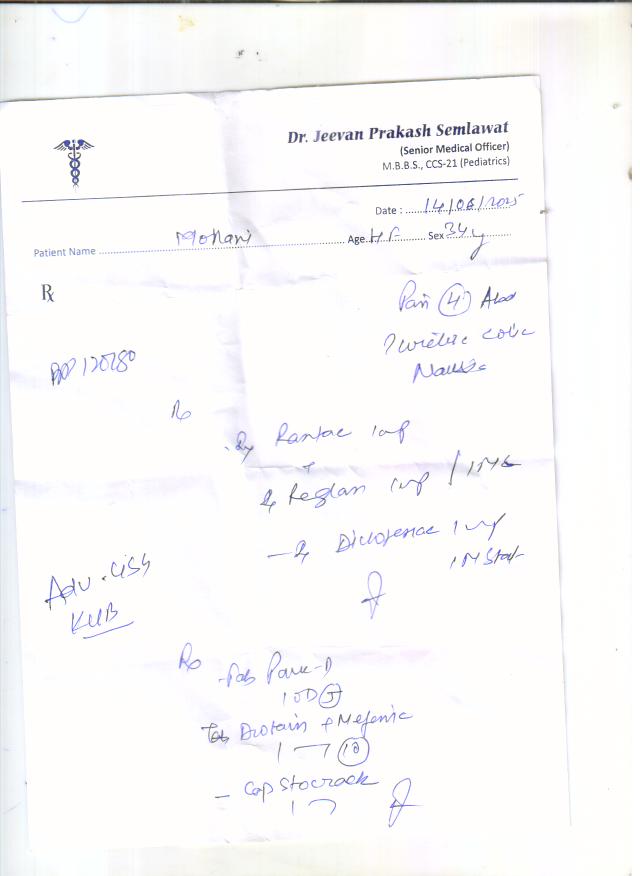 Dr. Jeevan Prakash Semlawat
(Senior Medical Officer)
M.B.B.S., CCS-21 (Pediatrics)
Date : 14/06/2025
Patient Name Mohani Age H F Sex 34 y
Rx
Pain (4) Abd
? uretric colic
Nausea
BP 120/80
Rx
Rantac 1 amp
+
Reglan 1 amp / IM
- Diclofenac 1 amp
IM Stat
Adv. USG
KUB
Rx
- Tab Pane-D
1 OD (5)
Tab Drotain + Mefenic
1 (10)
- Cap Stocrack
1